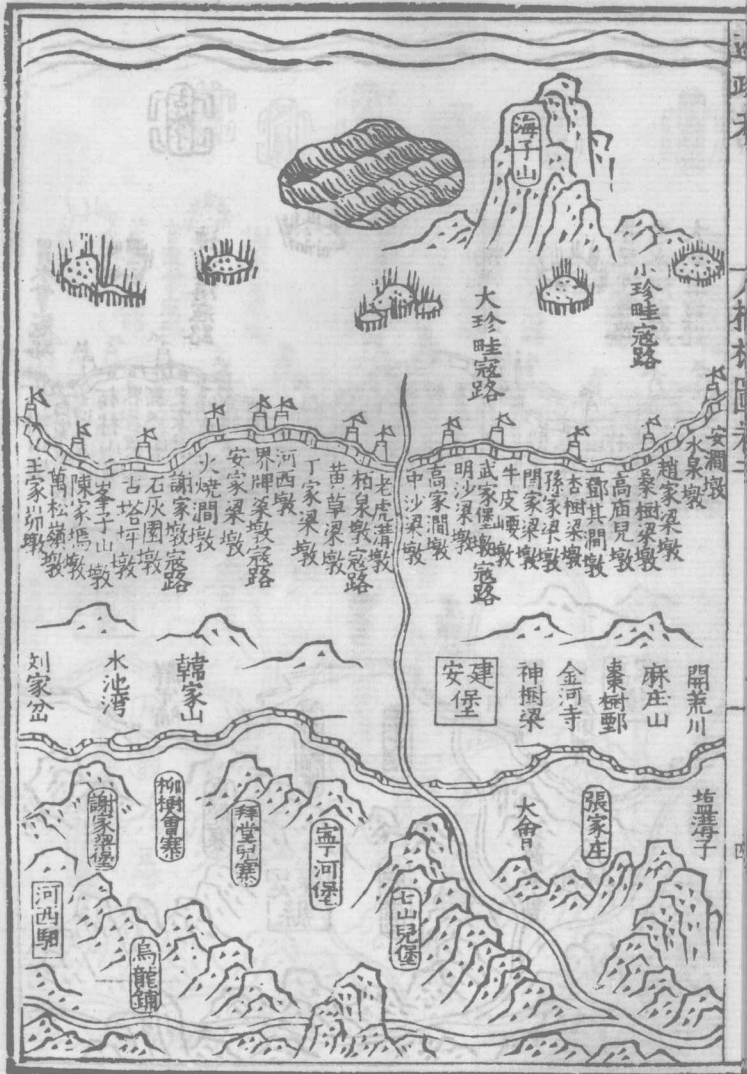 海子山
小珍畦寇路
大珍畦寇路
安澗墩
水泉墩
趙家梁墩
桑樹梁墩
高庙兒墩
鄧其澗墩
杏樹梁墩
孫家梁墩
閆家梁墩
牛皮腰山墩
武家堡墩寇路
明沙梁墩
高家澗墩
中沙梁墩
老虎溝墩
柏泉墩寇路
苗草梁墩
丁家梁墩
河西墩
界牌梁墩寇路
安家梁墩
火燒澗墩
謝家墩寇路
石灰圍墩
古塔坪墩
峯子山墩
陳家塌墩
萬松嶺墩
王家峁墩
開荒川
麻庄山
棗樹鄄
金河寺
神樹梁
建安堡
韓家山
水池湾
刘家岔
塩溝子
張家庄
大會
七山兒堡
寧河堡
拜堂兒寨
柳樹會寨
謝家翠堡
烏龍鋪
河西馹